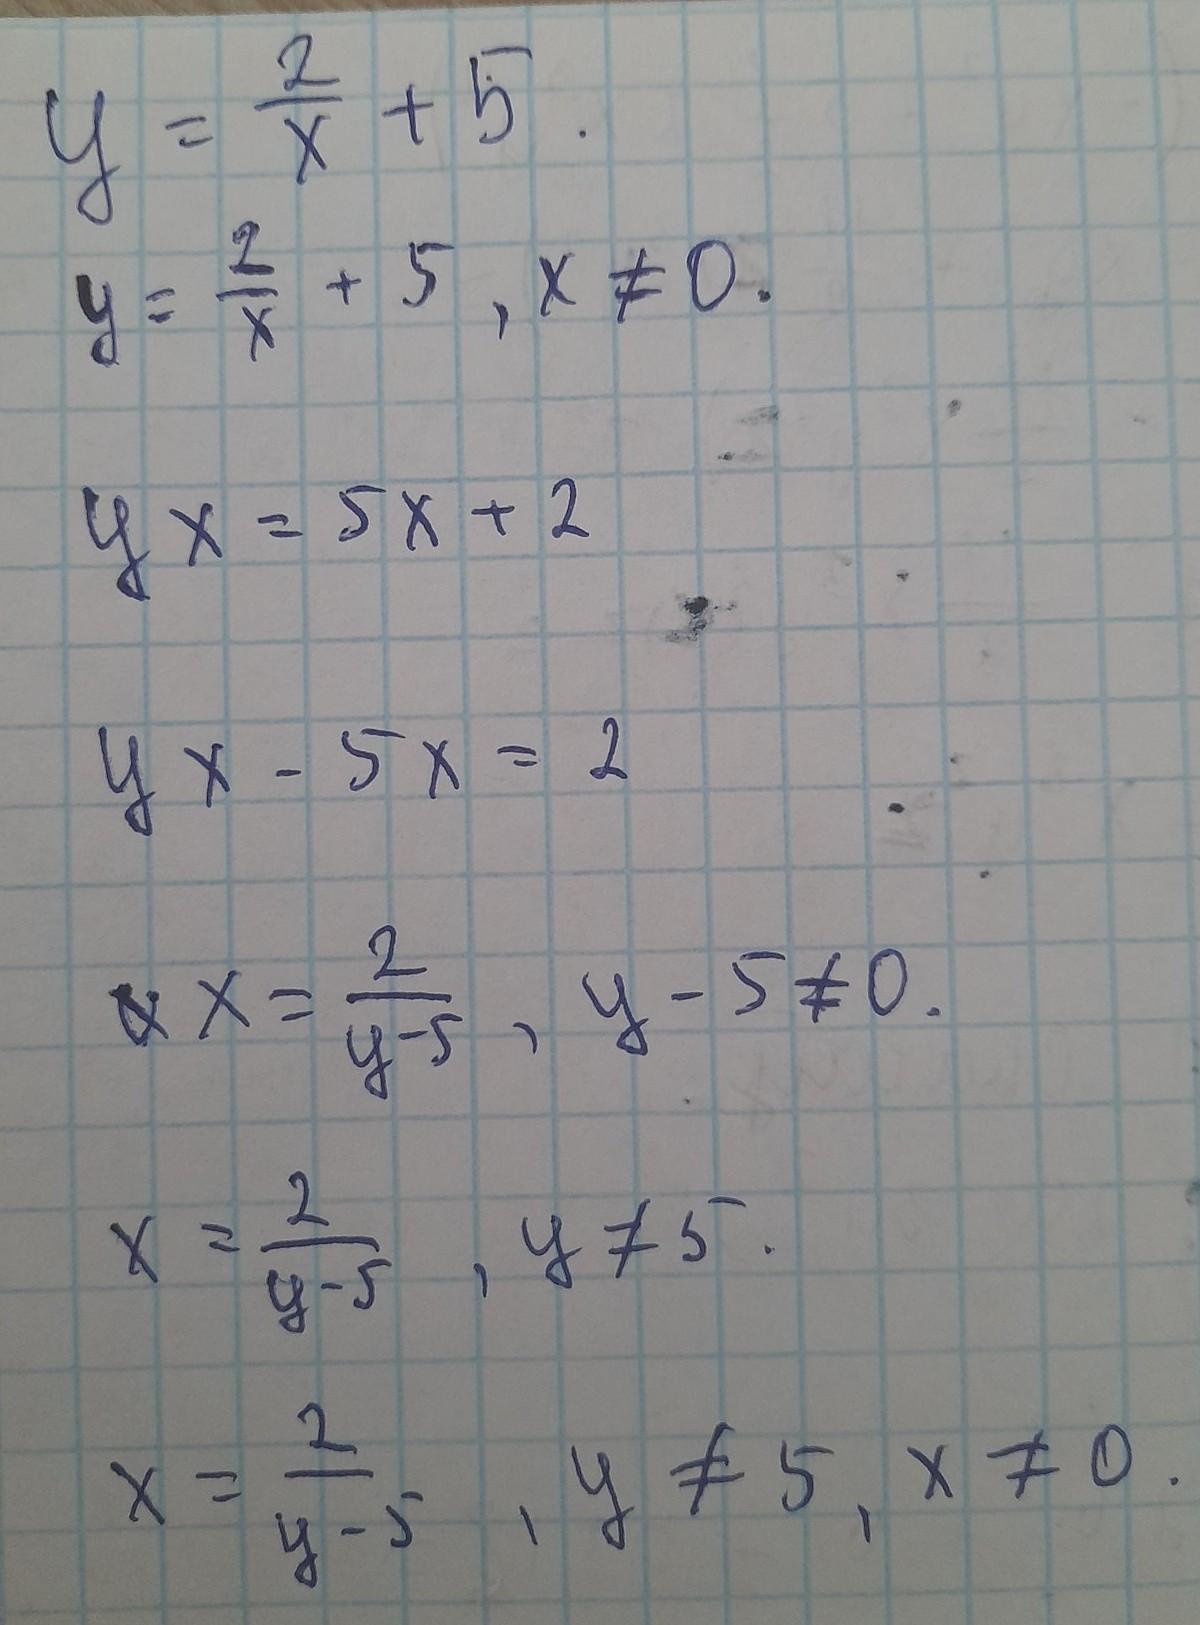 y = 2/x + 5.
y = 2/x + 5, x ≠ 0.
yx = 5x + 2
yx - 5x = 2
x = 2/(y-5), y - 5 ≠ 0.
x = 2/(y-5), y ≠ 5.
x = 2/(y-5), y ≠ 5, x ≠ 0.